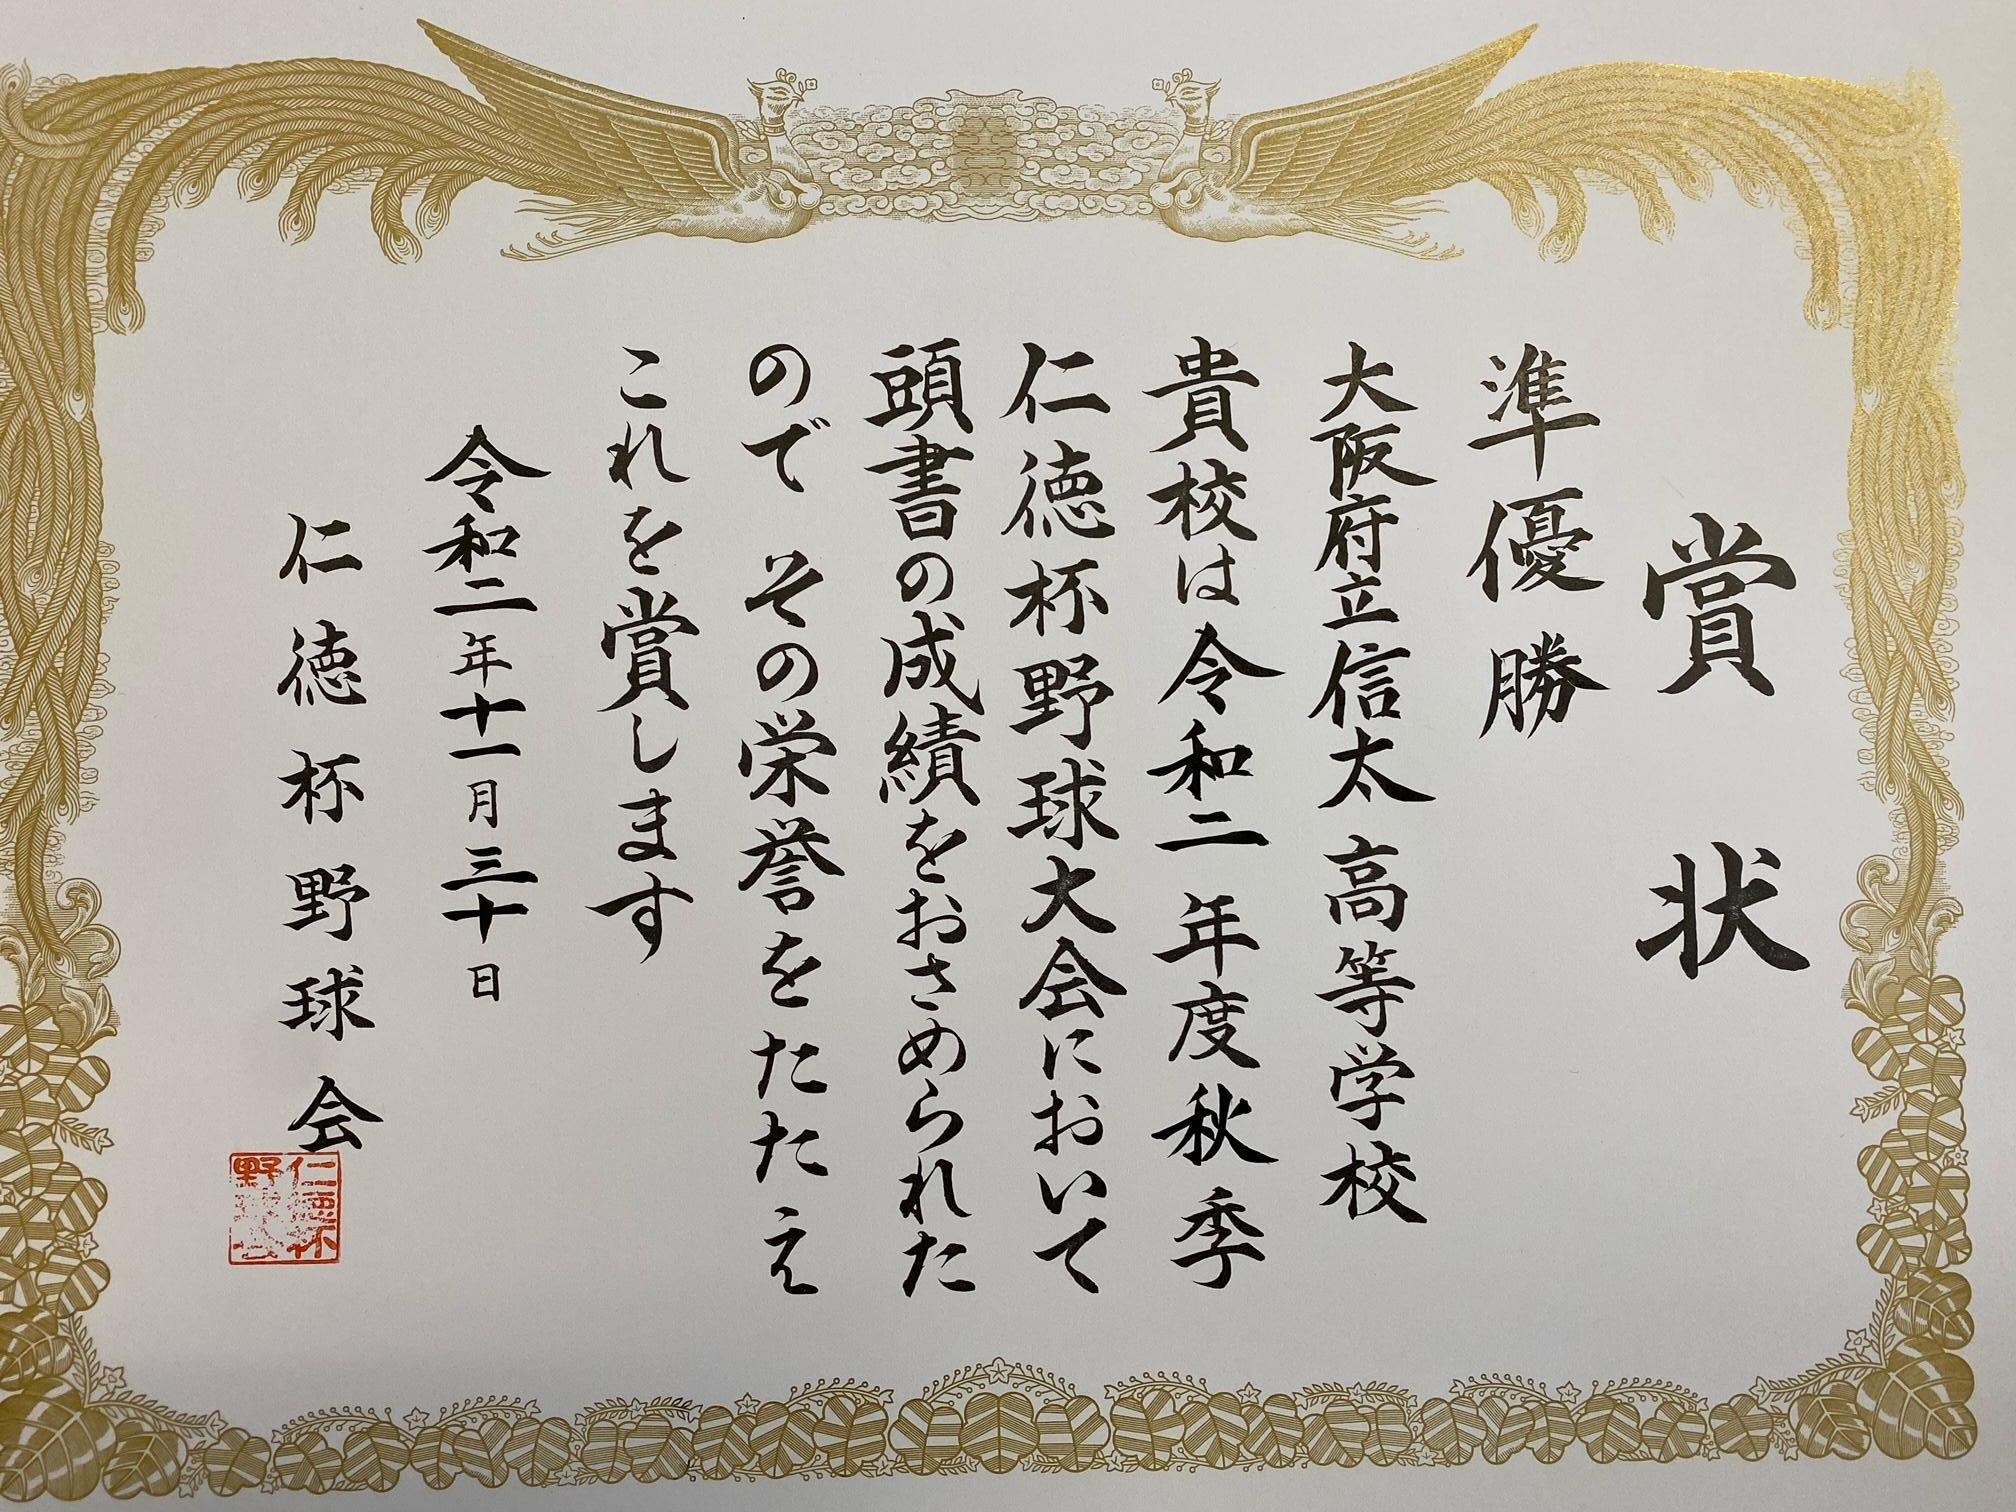 賞状
準優勝
大阪府立信太高等学校
貴校は令和二年度秋季
仁徳杯野球大会において
頭書の成績をおさめられた
ので その栄誉をたたえ
これを賞します
令和二年十一月三十日
仁徳杯野球会
仁徳杯